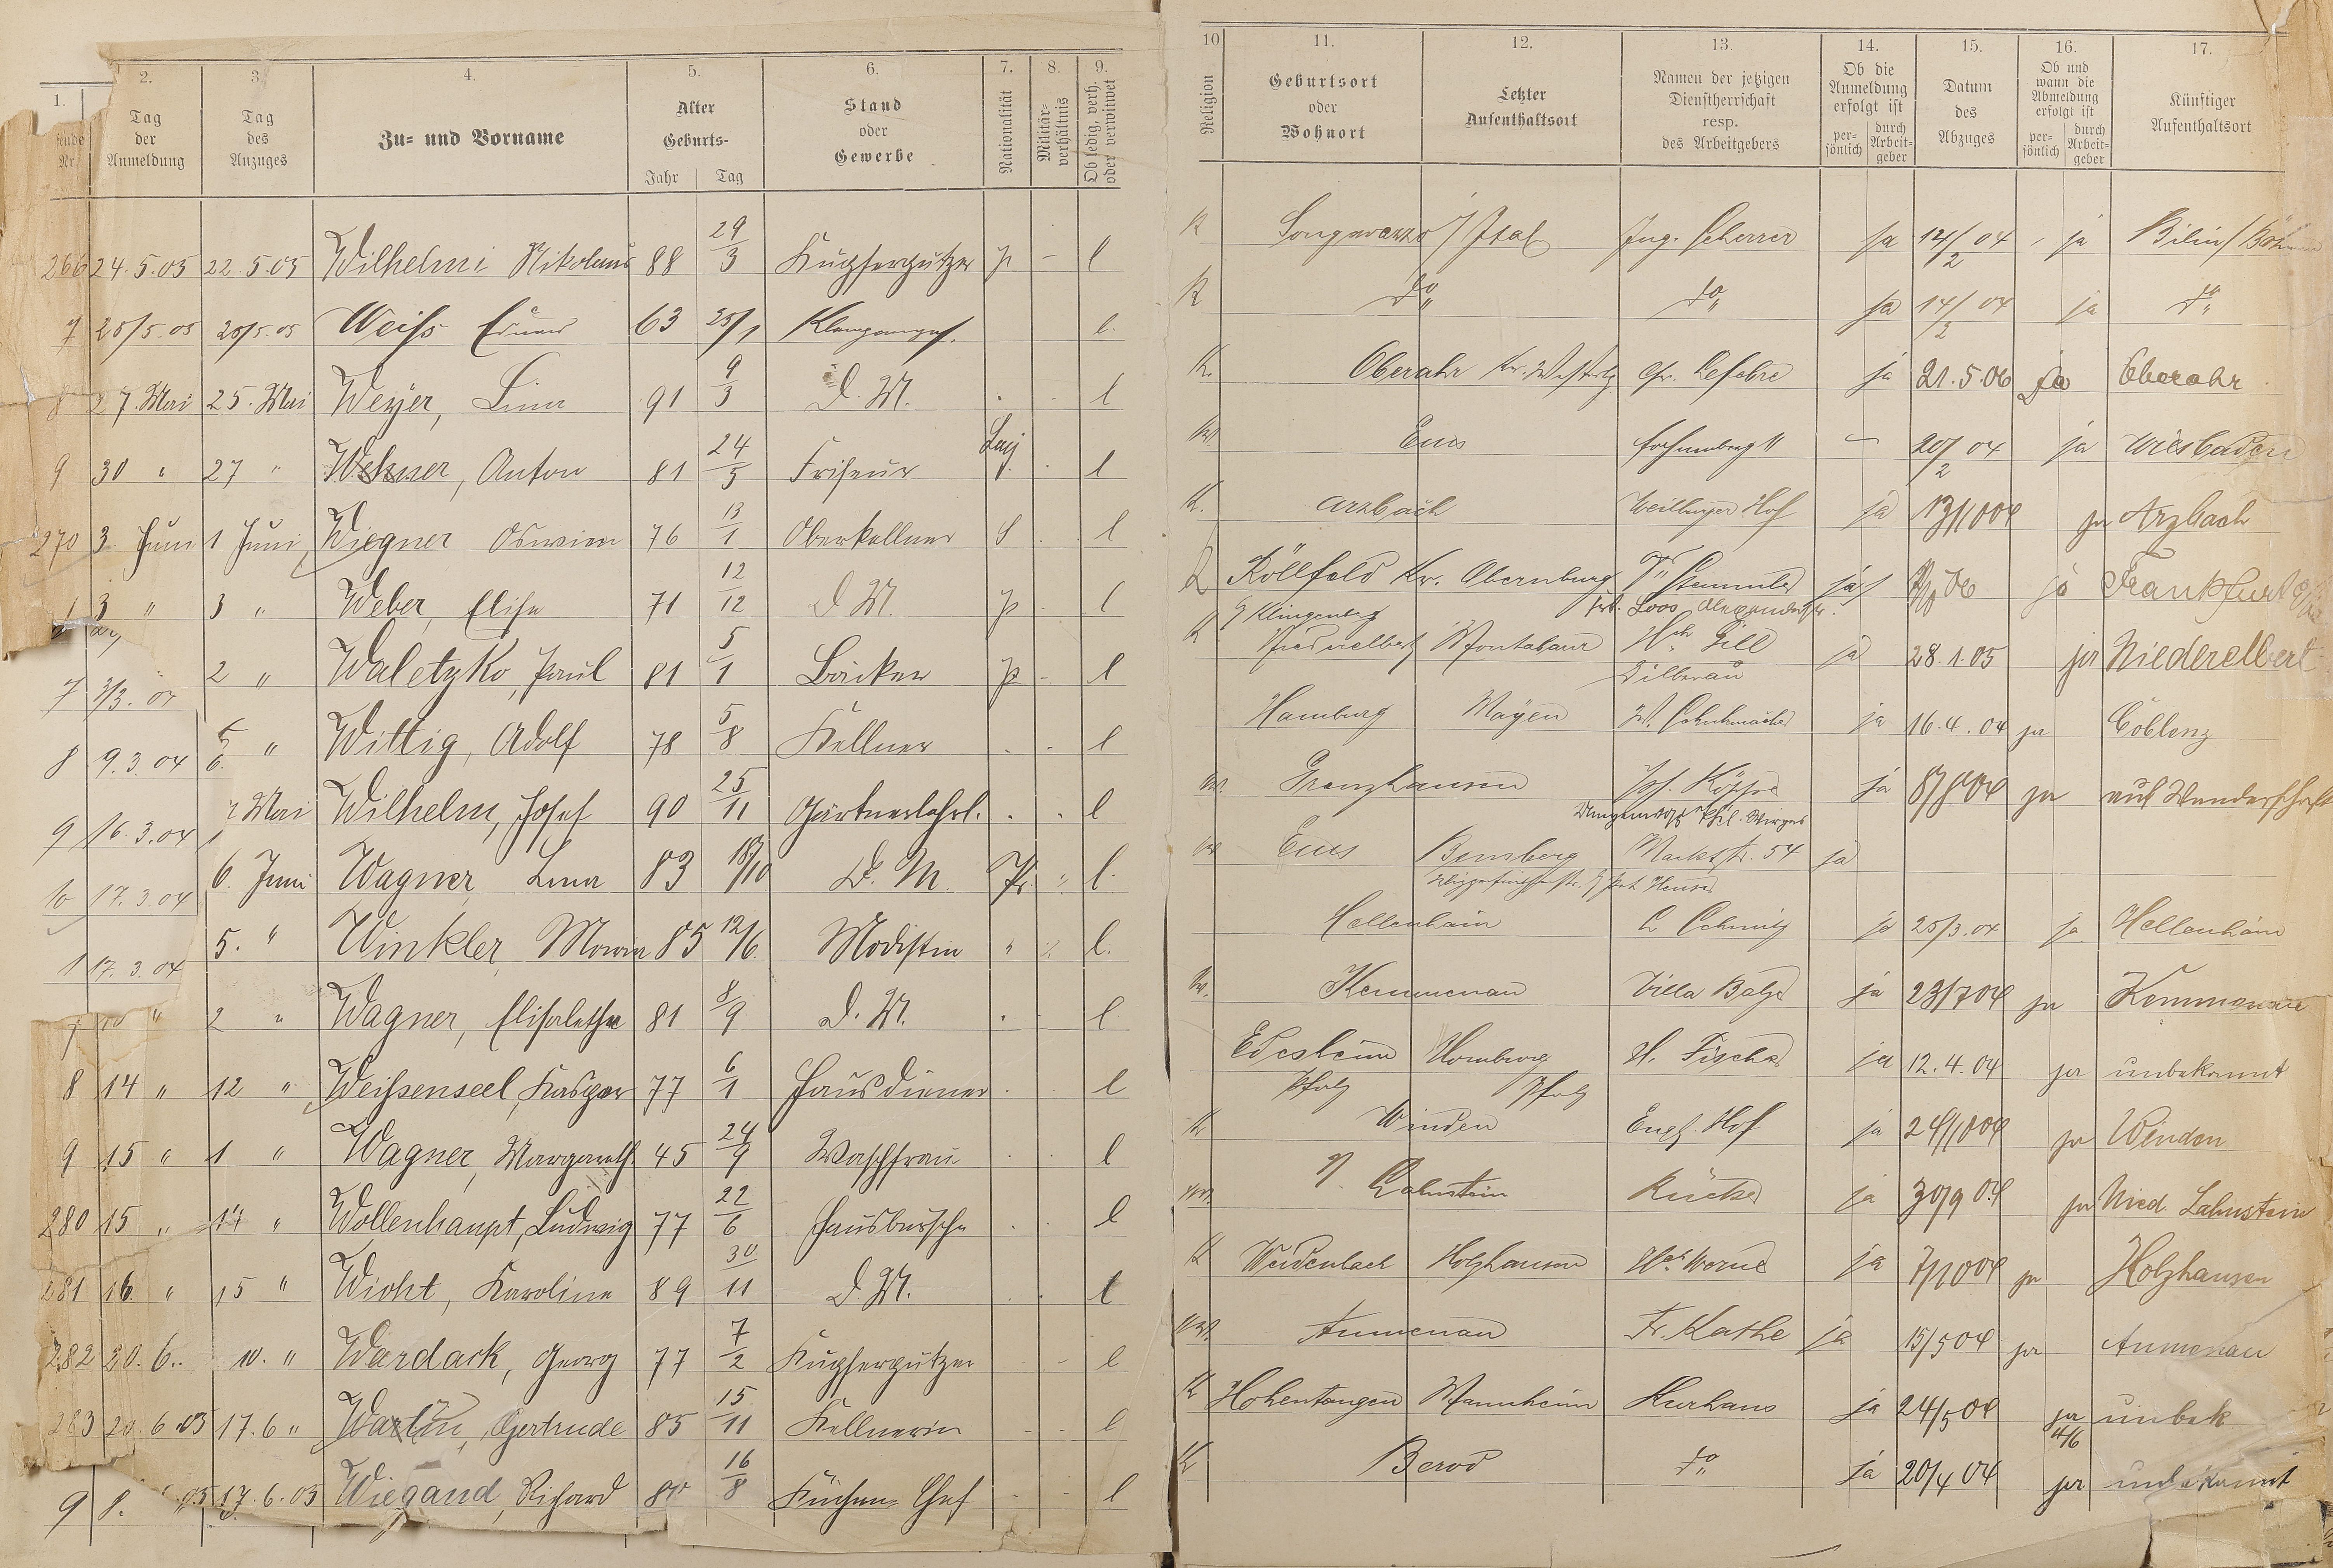 1.
2.
3.
4.
5.
6.
7.
8.
9.
fende Nr.
Tag der Anmeldung
Tag des Anzuges
Zu- und Vorname
Alter
Geburts-
Jahr
Tag
Stand oder Gewerbe
Nationalität
Militär-verhältnis
Ob ledig, verh. oder verwitwet
266 24.5.05 22.5.05 Wilhelmi Nikolaus 88 29/3 Kupferputzer p - l
7 25/5.05 Weiss 63 25/1 l.
8 27. Mai 25. Mai Weyer, Lina 91 9/3 D. M. l
9 30 " 27 " Anton 81 24/5 Friseur l
270 3 Juni 1 Juni Wiegner 76 13/1 Oberkellner S l
1 3 " 3 " Weber, Elise 71 12/12 D M. p l
2 " Waletzko, Paul 81 5/1 Bäcker p - l
7 3/3.
8 9.3.04 " Wittig, Adolf 78 5/8 Kellner l
9 16.3.04 Mai Wilhelm, Josef 90 25/11 Gärtnerlehrl. l
10 17.3.04 6. Juni Wagner Lina 83 18/10 D. M. Pr. " l.
1 17.3.04 5. " Winkler, Maria 85 12/6 Modistin " l.
2 " Wagner, Elisabetha 81 8/9 D. M. l
8 14 " 12 " Weißenseel, Kaspar 77 6/1 Hausdiener l
9 15 " 1 " Wagner, Margareth. 45 24/9 Waschfrau l
280 15 " 14 " Wollenhaupt, Ludwig 77 22/6 Hausbursche l
281 16 " 15 " Wicht, Karoline 89 30/11 D. M. l
282 20. 6.. 10. " Wardack, Georg 77 7/2 Kupferputzer - l
283 20. 6 05 17.6 " Gertrude 85 15/11 Kellnerin l
9 8. 05 17.6.05 Wiegand, Richard 80 16/8 Küchen-Chef - l
10
11.
12.
13.
14.
15.
16.
17.
Religion
Geburtsort oder Wohnort
Letzter Aufenthaltsort
Namen der jetzigen Dienstherrschaft resp. des Arbeitgebers
Ob die Anmeldung erfolgt ist
per-sönlich
durch Arbeit-geber
Datum des Abzuges
Ob und wann die Abmeldung erfolgt ist
per-sönlich
durch Arbeit-geber
Künftiger Aufenthaltsort
K Songavazzo / Ital Ing. Scherrer ja 14/2 04 ja Bilin / Böhmen
K do " do " ja 14/2 04 ja do "
K. Oberahr Lefebre ja 21.5.06 Ja Oberahr
Ems - 20/2 04 ja Wiesbaden
K. Arzbach Weilburger Hof ja 13/10 04 ja Arzbach
Röllfeld Kr. Obernburg ja 06 ja Frankfurt
Klingenberg Loos
K Niederelbert Montabaur Hch Gill ja 28.1.05 ja Niederelbert
Silberau
Hamburg Mayen W. Schuhmacher ja 16.4.04 ja Coblenz
Grenzhausen Jos. ja 8/8 04 ja auf Wanderschaft
Ems Bensberg Markstr. 54 ja
Hellenhain L Schmitz ja 25/3.04 ja Hellenhain
Kemmenau Villa Balzer ja 23/7 04 ja Kemmenau
Edesheim Homburg H. Fischer ja 12.4.04 ja unbekannt
Pfalz Pfalz
K Winden Engl. Hof ja 24/10 04 ja Winden
N. Lahnstein Rücker ja 30/9 04 ja Nied. Lahnstein
K Weidenbach Holzhausen ja 7/10 04 ja Holzhausen
Aumenau Fr. Kathe ja 15/5 04 ja Aumenau
K Hohentengen Mannheim Kurhaus ja 24/5 04 ja unbek
4/6
K Berod do " ja 20/4 04 ja unbekannt